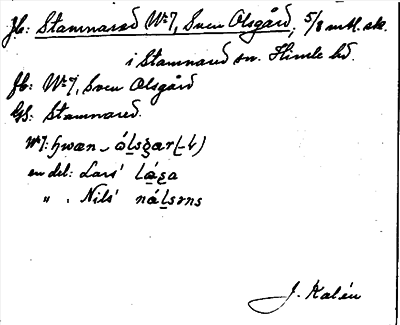 Jb: Stamnared Nr 7, Sven Olsgård, 5/8 mtl. sk.
i Stamnared sn. Himle hd.
Jb: Nr 7, Sven Olsgård
GS: Stamnared.
Nr 7:
en del: Lars'
" . Nils'
J. Kalén